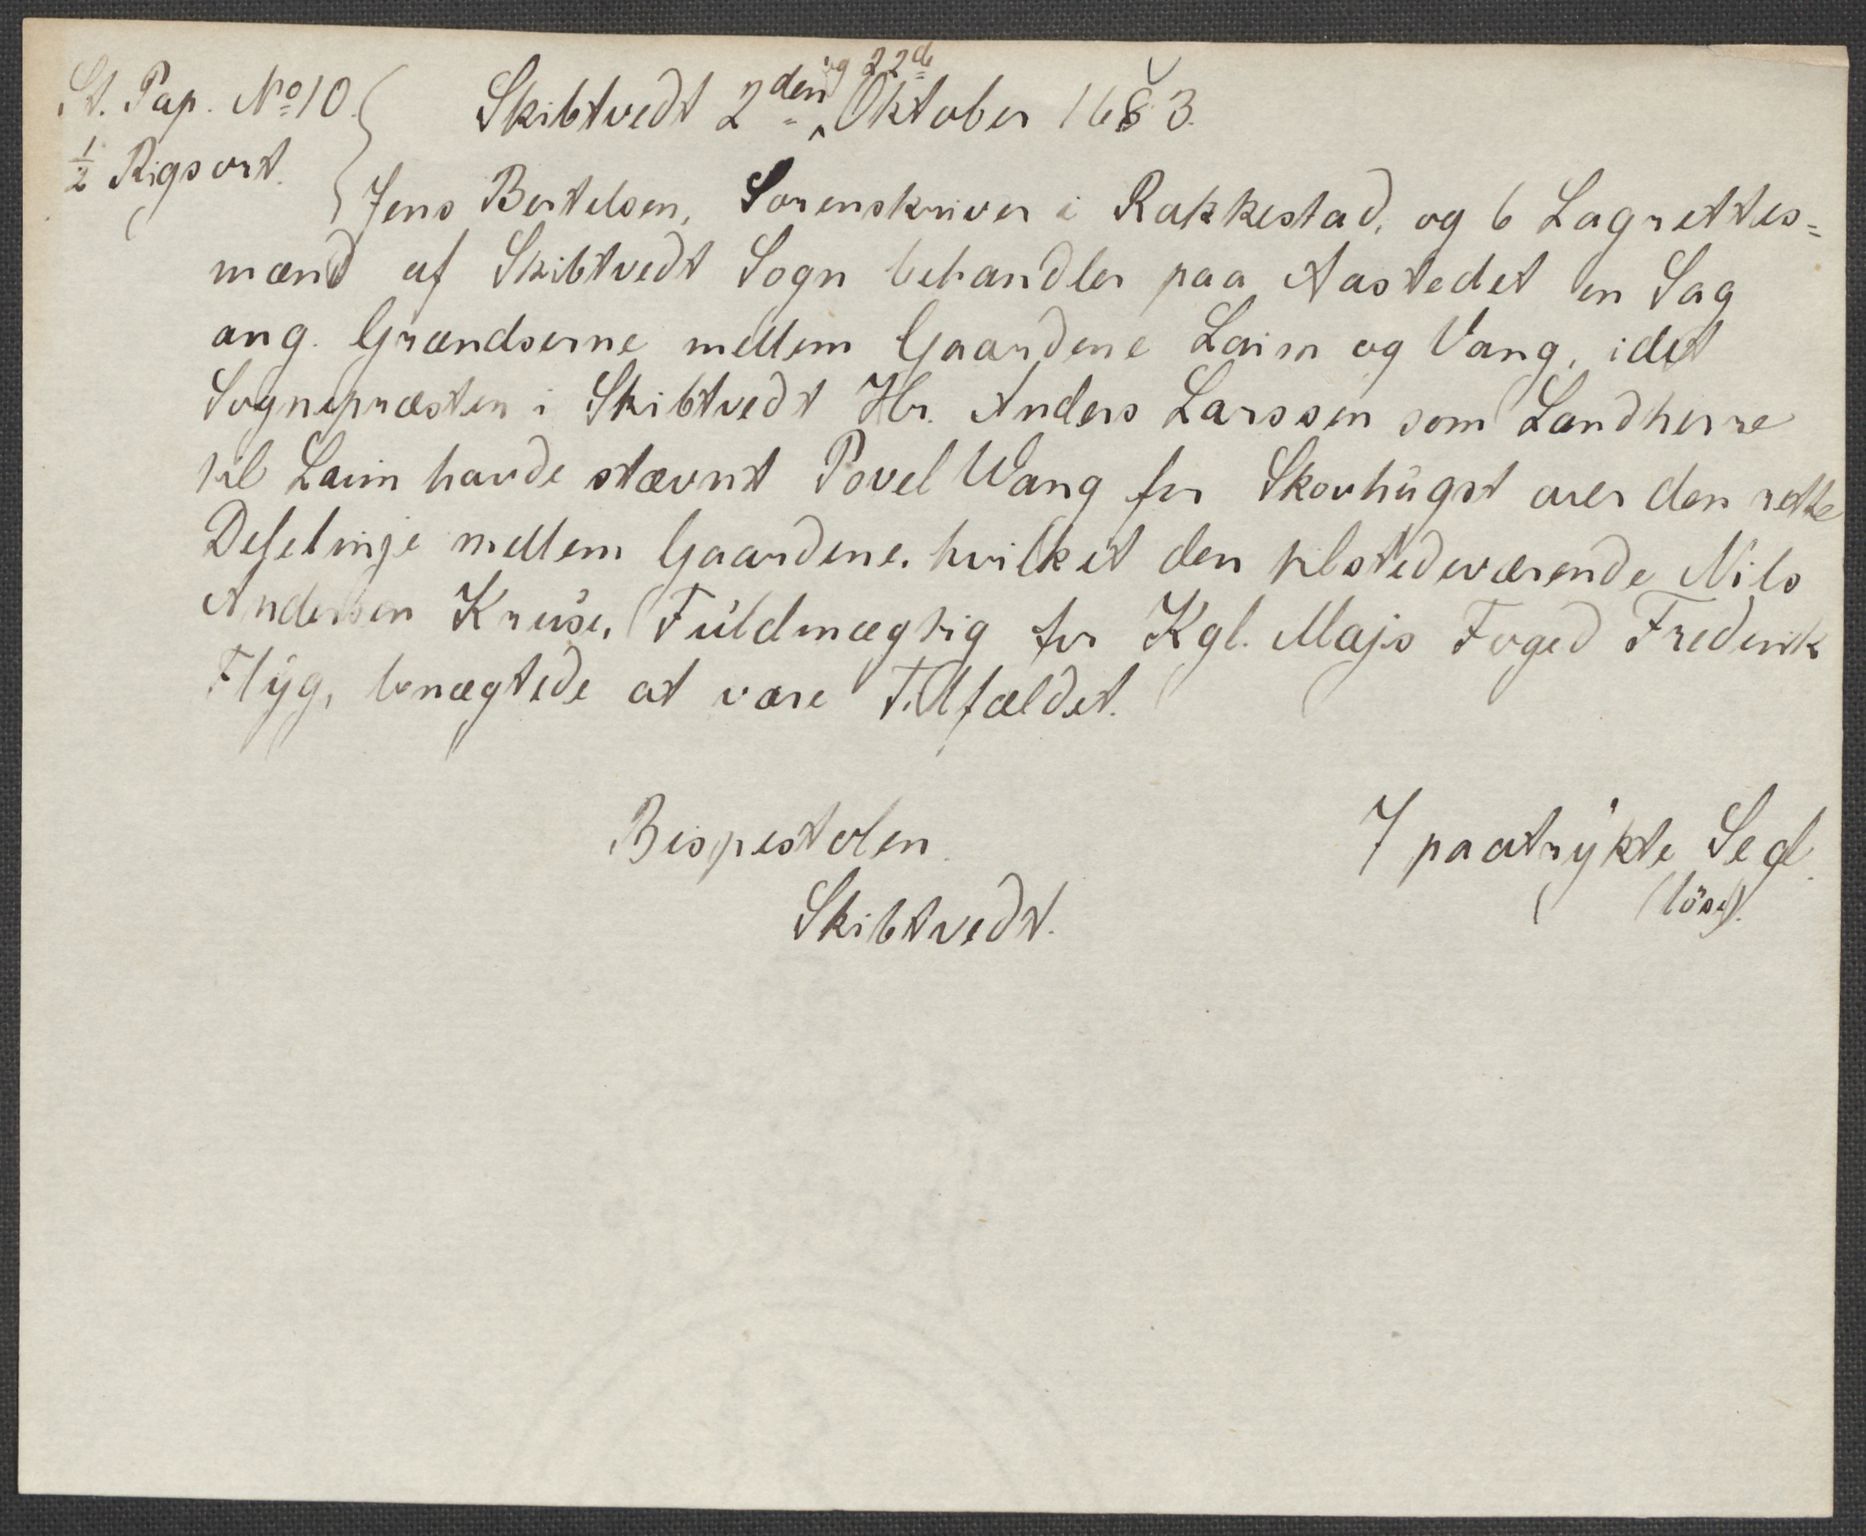 St. Pap. No 10.
½ Rigsort.
Skibtvedt 2den og 22de Oktober 1683.
Jens Bertelsen, Sorenskriver i Rakkestad, og 6 Lagrettes=
mænd af Skibtvedt Sogn behandler paa Aastedet en Sag
ang. Grændserne mellem Gaardene Laim og Vang, idet
Sognepræsten i Skibtvedt Hr. Anders Larssen som Landherre
til Laim havde stævnt Povel Wang for Skovhŭgst over den rette
Delelinje mellem Gaardene, hvilket den tilstedeværende Nils
Andersen Krŭse, Fŭldmægtig for Kgl. Majs Foged Frederik
Flÿg, benægtede at være Tilfældet.
Bispestolen.
Skibtvedt.
7 paatrÿkte Segl.
(löse).